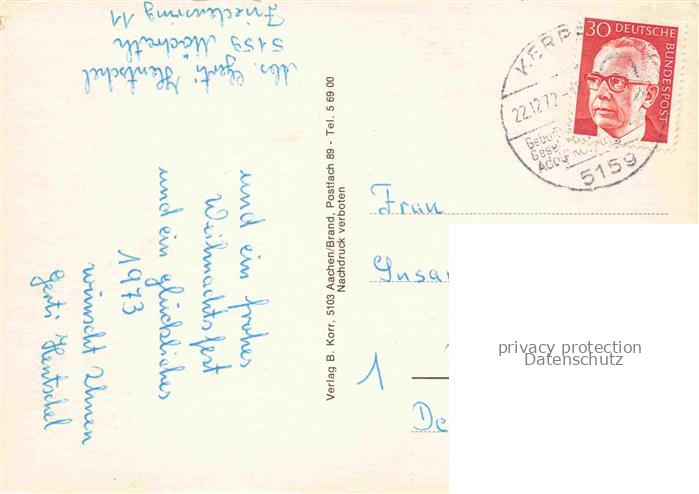 Abs. Gerti Hentschel
5159 Mödrath
Friedensring 11
und ein frohes
Weihnachtsfest
und ein glückliches
1973
wünscht Ihnen
Gerti Hentschel
Verlag B. Korr, 5103 Aachen/Brand, Postfach 89 - Tel. 5 69 00
Nachdruck verboten
KERPE
22.12.72
Gebu
Gese
Adolf
5159
30 DEUTSCHE
BUNDESPOST
Frau
Susa
1
De
privacy protection
Datenschutz